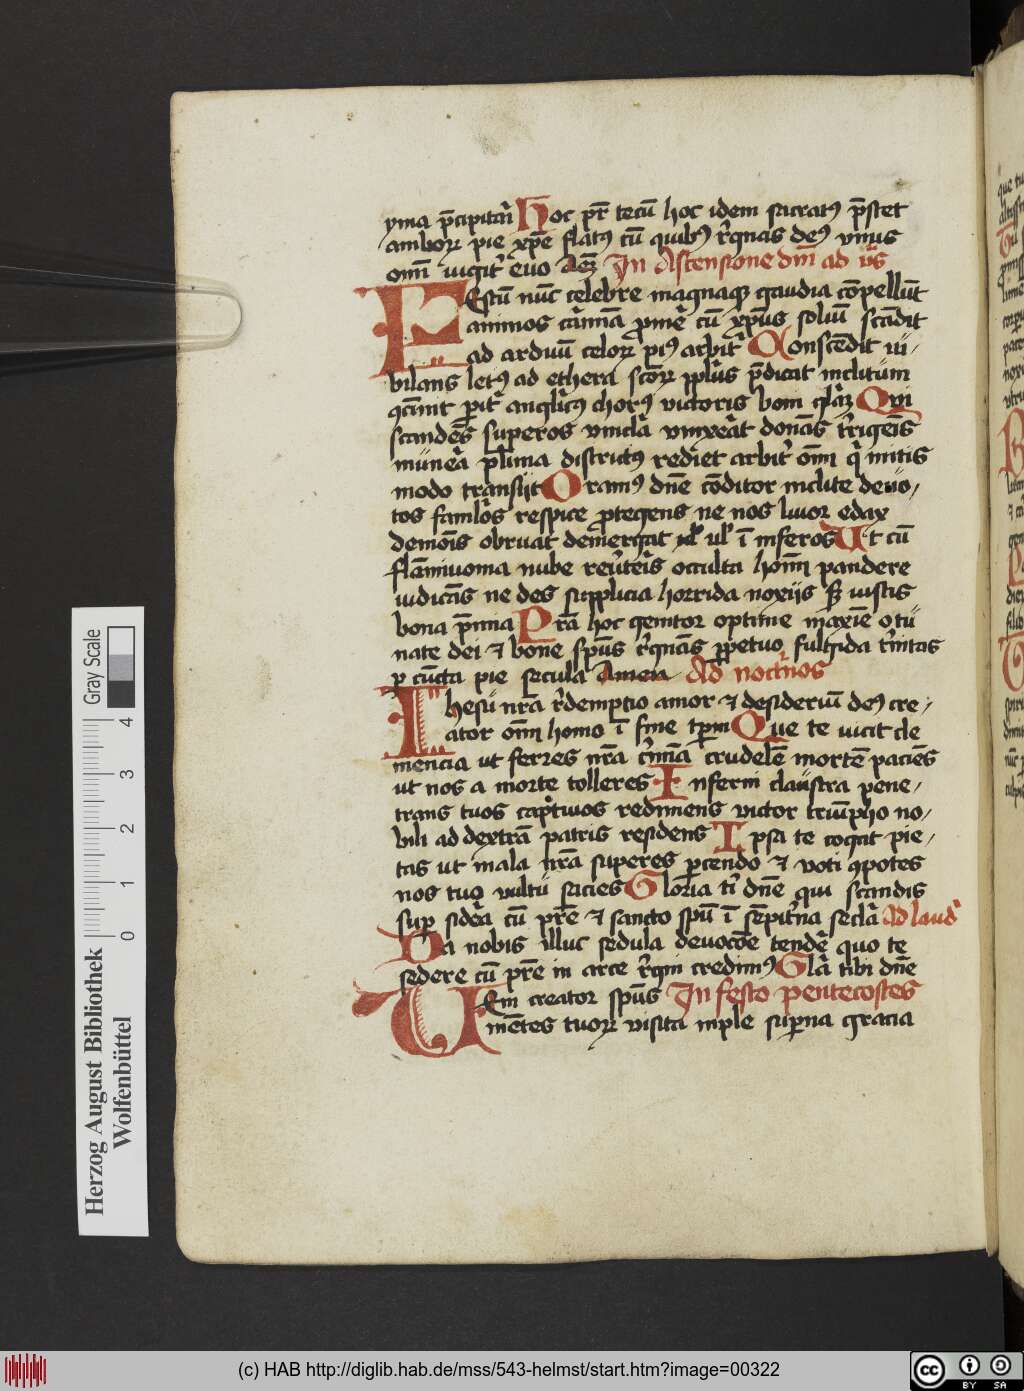 yma p̄cipitar̄i Hoc pr̄ tecū hoc idem sacratꝰ p̄stet
amborꝝ pie xp̄e flatꝰ cū quibꝰ r̓gnas deꝰ vnus
om̄i iugit̓ euo Am̄ In Ascensione dn̄i ad vs̄
FEstū nūc celebre magnaqꝫ gaudia cōpellūt
animos carmīa ꝓmē cū xp̄us soliū scādit
ad arduū celorꝝ piꝰ arbit̓ Conscēdit iu-
bilans letꝰ ad ethera scōrꝝ pplūs p̄dicat inclitum
ꝯcinit pit̓ anglicꝰ chorꝰ victoris boni glīaꝫ Qui
scandēs superos vincla vinxerāt donās t̓rigeīs
munera plīma districtꝰ rediet arbit̓ om̄i q̓ mitis
modo transijt Oramꝰ dn̄e cōditor inclite deuo-
tos famlos respice ꝓtegens ne nos liuor edax
demōis obruat demergat ul̓ ī inferos Ut cū
flāmiuoma nube reu̓teris occulta hoīm pandere
iudicās ne des supplicia horrida noxijs sꝫ iustis
bona p̄mia Pr̄a hoc genitor optime maxīe o tu
nate dei ⁊ bone spūs r̓gnās ꝑpetuo fulgida t̓nitas
ꝑ cūcta pie secula Amen Ad noctur̄nos
Ihesu nr̄a r̓demptio amor ⁊ desideriū deꝰ cre-
ator om̄i homo ī fine tp̄m Que te vicit cle
mencia ut ferres nr̄a c̓mīa crudelē mortē paciēs
ut nos a morte tolleres Inferni claustra pene-
trans tuos captiuos redimens victor triūpho no-
bili ad dextrā patris residens Ipsa te cogat pie-
tas ut mala nr̄a superes ꝑcendo ⁊ voti ꝯpotes
nos tuo vultu sacies Gloria ti̓ dn̄e qui scandis
suꝑ sidera cū pr̄e ⁊ sancto spū ī sēpit̓na secla Ad laud̓
Da nobis illuc sedula deuocōe tendē quo te
sedere cū pr̄e in arce r̓gni credimꝰ Gla tibi dn̄e
UEni creator spūs In festo pentecostes
mētes tuorꝝ visita imple suꝑna gracia
Herzog August Bibliothek
Wolfenbüttel
Gray Scale
0 1 2 3 4
(c) HAB http://diglib.hab.de/mss/543-helmst/start.htm?image=00322
cc BY SA